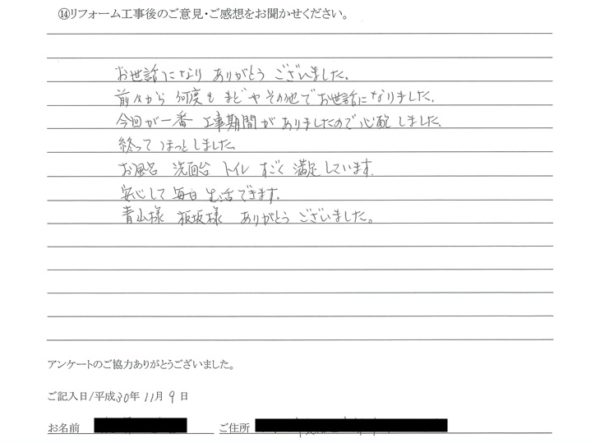 ⑭リフォーム工事後のご意見・ご感想をお聞かせください。
お世話になり ありがとう ございました。
前々から 何度も まどや その他で お世話になりました。
今回が一番 工事期間が ありましたので 心配 しました。
終って ほっと しました。
お風呂 洗面台 トイレ すごく 満足しています。
安心して 毎日 生活できます。
青山様 板坂様 ありがとう ございました。
アンケートのご協力ありがとうございました。
ご記入日/平成30年11月9日
お名前 ご住所